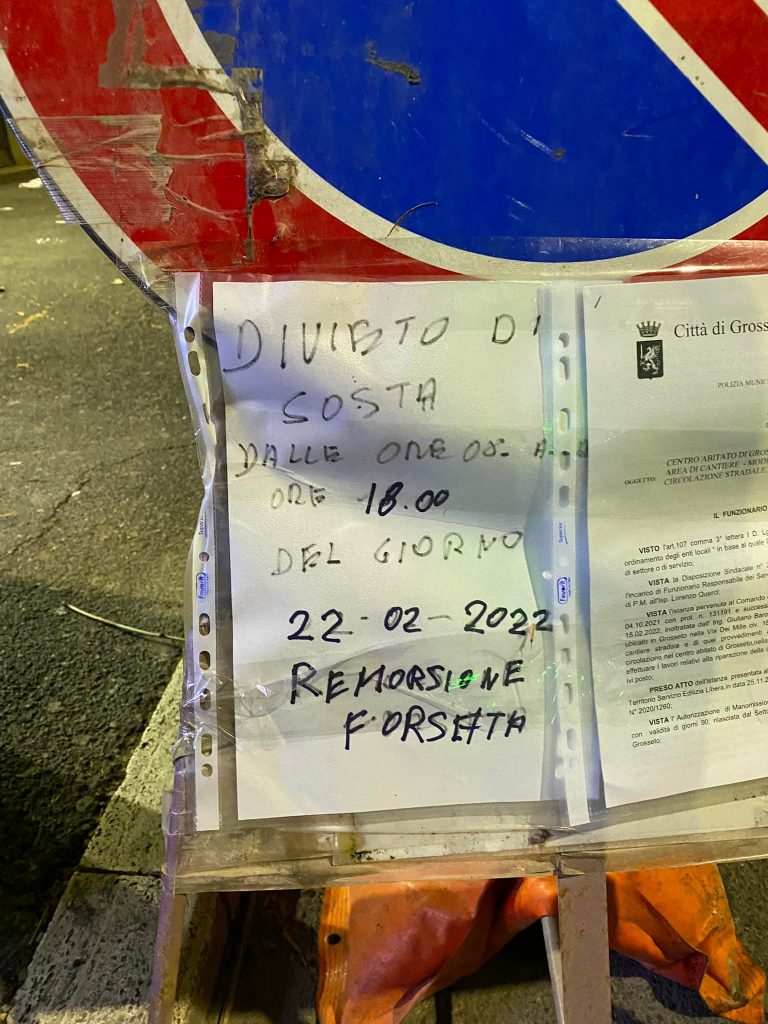 DIVIETO DI
SOSTA
DALLE ORE
ORE 18.00
DEL GIORNO
22-02-2022
REMORSIONE
FORSATA
Favorit
Superior
Città di Gross
POLIZIA MUNIC
CENTRO ABITATO DI GROS
AREA DI CANTIERE - MODI
OGGETTO: CIRCOLAZIONE STRADALE
IL FUNZIONARIO
VISTO l'art.107 comma 3° lettera I D. Lg
ordinamento degli enti locali " in base al quale
di settore o di servizio;
VISTA la Disposizione Sindacale n°
l'incarico di Funzionario Responsabile del Ser
di P.M. all'Isp. Lorenzo Querci;
VISTA l'istanza pervenuta al Comando
04.10.2021 con prot. n. 131191 e success
15.02.2022, inoltrata dall' Ing. Giuliano Baro
ubicato in Grosseto nella Via Dei Mille civ. 18
cantiere stradale e di quei provvedimenti
circolazione nel centro abitato di Grosseto,nella
effettuare i lavori relativi alla riparazione della
ivi posto;
PRESO ATTO dell'istanza presentata al
Territorio Servizio Edilizia Libera,in data 25.11.2
N° 2020/1260;
VISTA l' Autorizzazione di Manomission
con validità di giorni 90, rilasciata dal Setto
Grosseto;